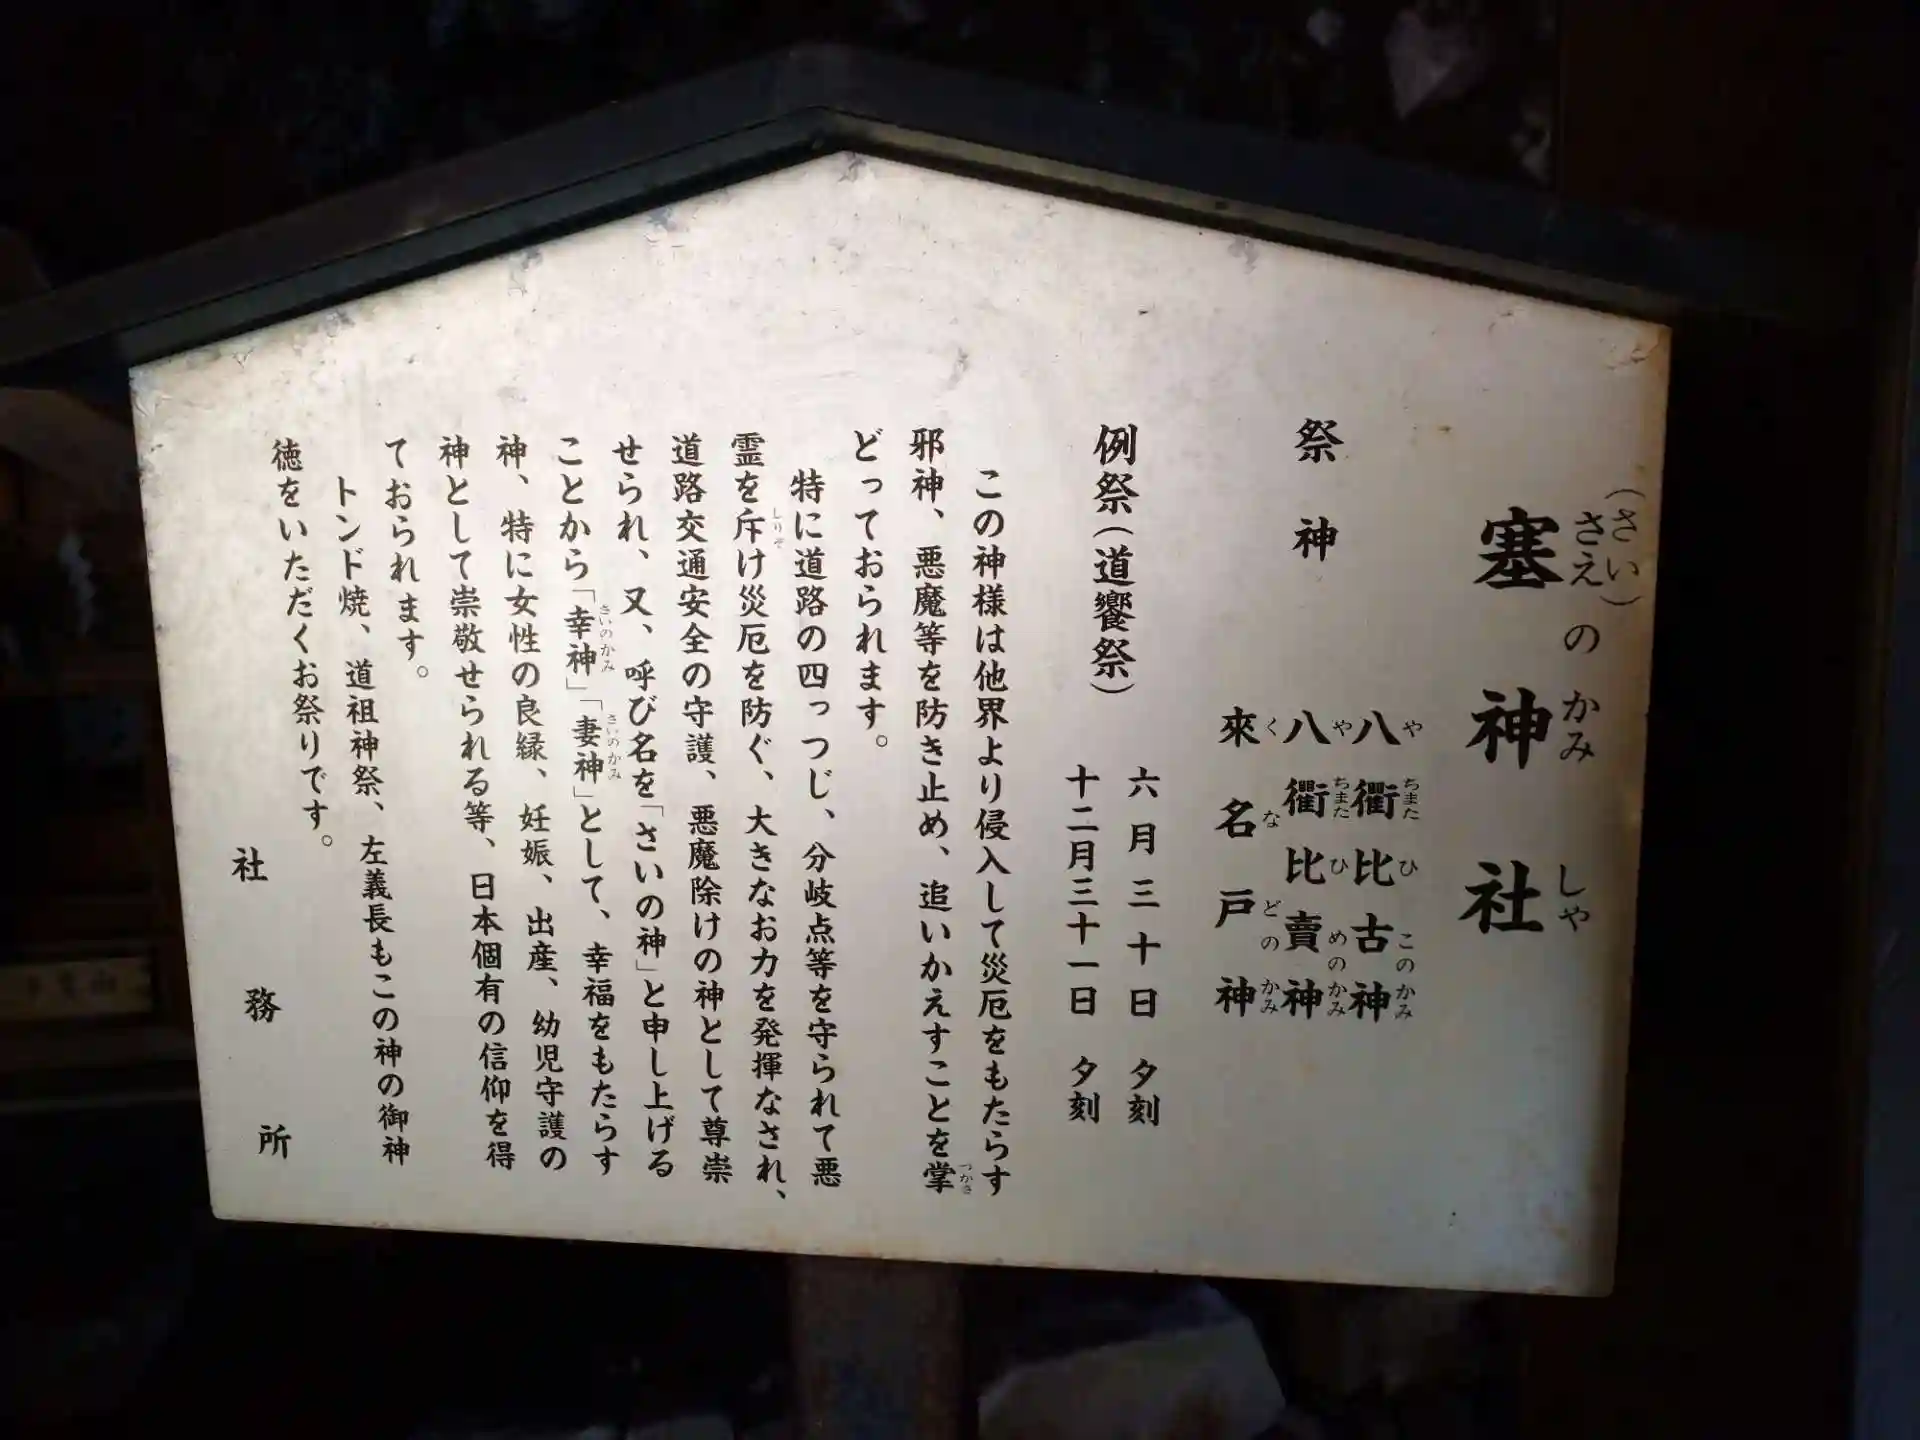 塞神社
（さい）
さえのかみしゃ
祭神
八衢比古神
やちまたひこのかみ
八衢比賣神
やちまたひめのかみ
來名戸神
くなどのかみ
例祭（道饗祭）
六月三十日　夕刻
十二月三十一日　夕刻
この神様は他界より侵入して災厄をもたらす
邪神、悪魔等を防き止め、追いかえすことを掌
つかさ
どっておられます。
特に道路の四っつじ、分岐点等を守られて悪
霊を斥け災厄を防ぐ、大きなお力を発揮なされ、
しりぞ
道路交通安全の守護、悪魔除けの神として尊崇
せられ、又、呼び名を「さいの神」と申し上げる
ことから「幸神」「妻神」として、幸福をもたらす
さいのかみ　さいのかみ
神、特に女性の良縁、妊娠、出産、幼児守護の
神として崇敬せられる等、日本個有の信仰を得
ておられます。
トンド焼、道祖神祭、左義長もこの神の御神
徳をいただくお祭りです。
社務所